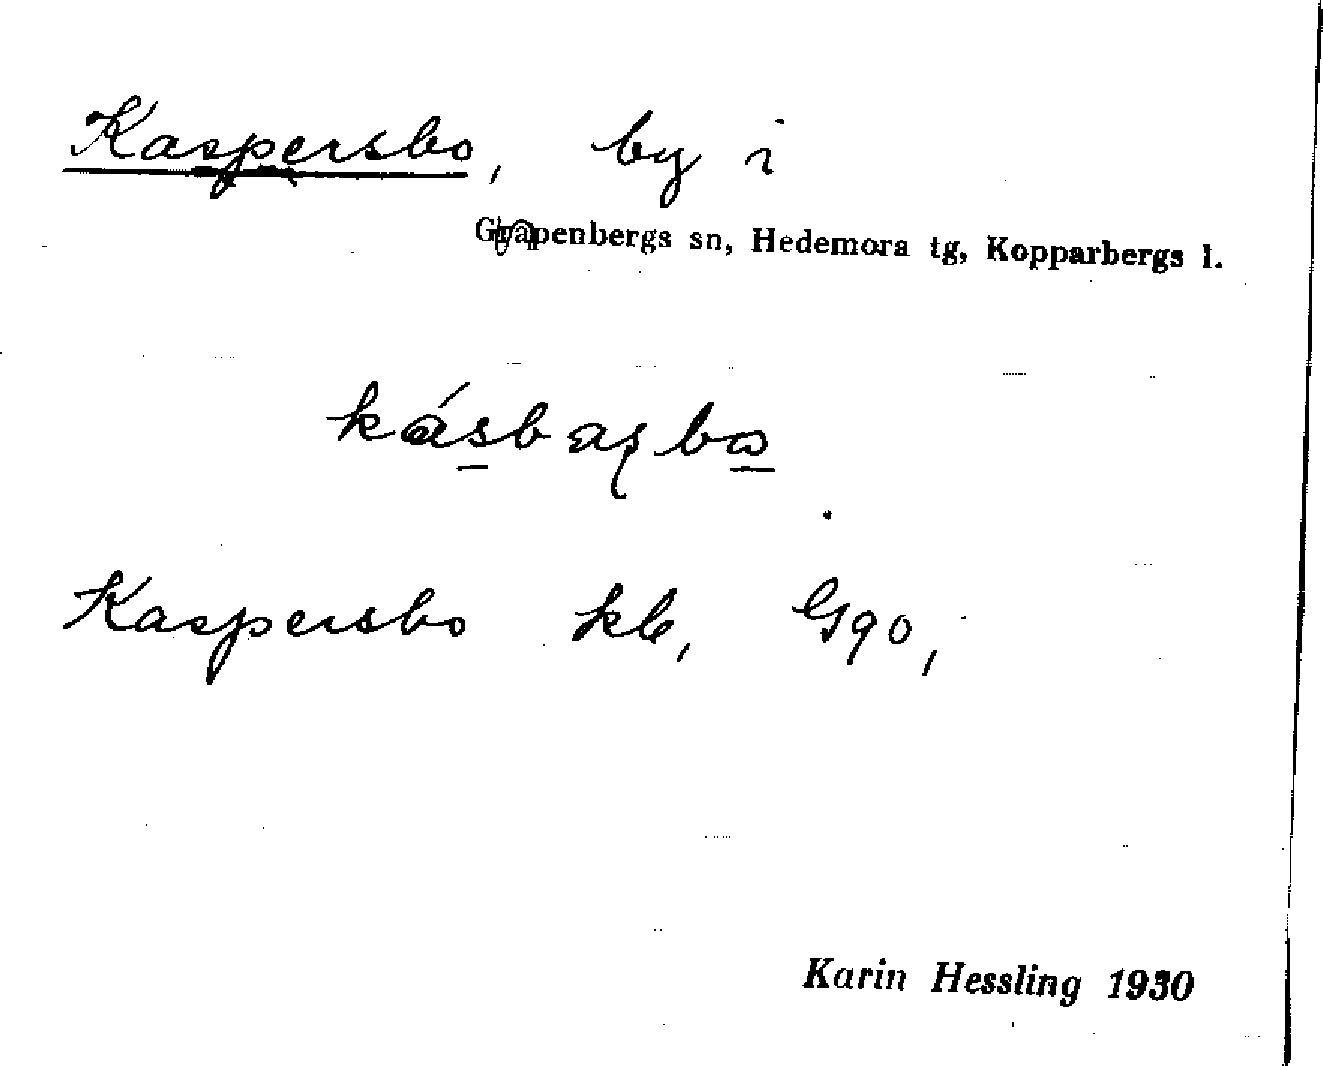 Kaspersbo, by i
Grapenbergs sn, Hedemora tg, Kopparbergs l.
Kaspersbo kb, G90,
Karin Hessling 1930